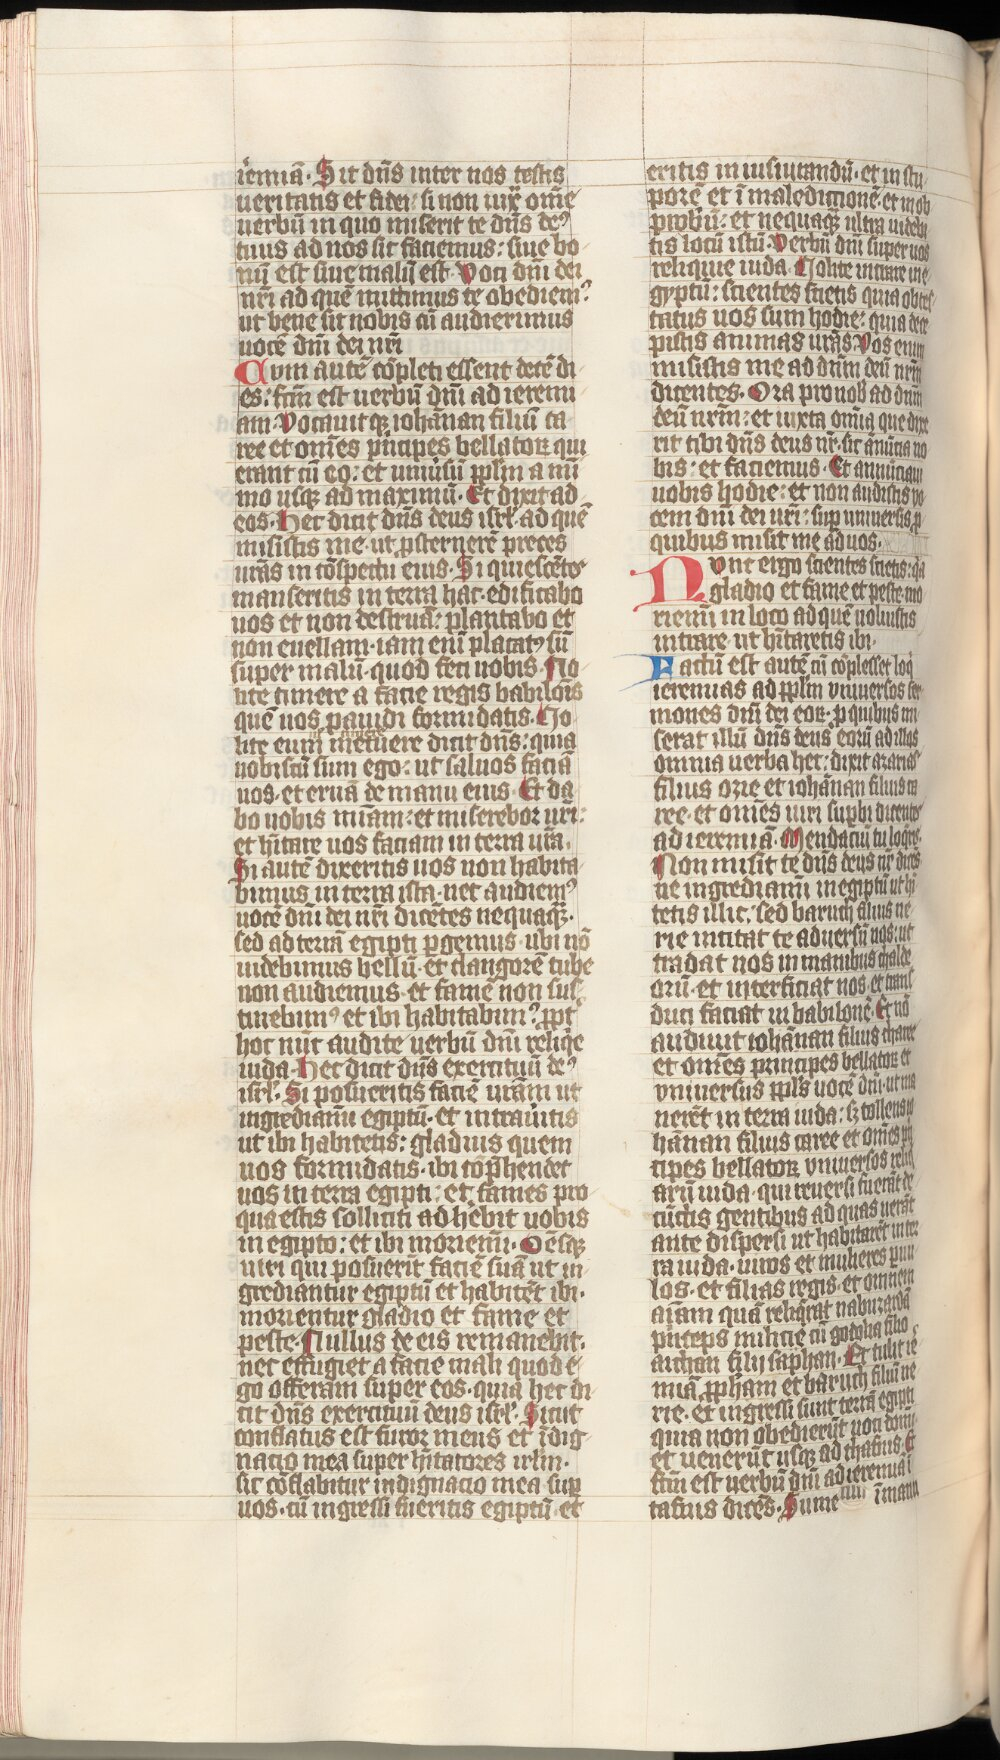 iemiā. Sit dn̄s inter nos testis
ueritatis et fidei: si non iux̄ om̄e
uerbū in quo miserit te dn̄s deꝰ
tuus ad nos sic faciemus: siue bo
nū est siue malū est. Voci dn̄i dei
nr̄i ad quē mittimus te obediemꝰ
ut bene sit nobis cū audierimus
uocē dn̄i dei nr̄i
Cum autē cōpleti essent decē di
es: fc̄m est uerbū dn̄i ad ieremi
am. Vocauitqꝫ iohānan filiū ca
ree et om̄es pͥncipes bellatoꝝ qui
erant cū eo: et uniūsū ppl̄m a mi
mo usqꝫ ad maximū. Et dixit ad
eos. Hec dicit dn̄s deus isrl̄. ad quē
misistis me. ut ꝓsternerē preces
ur̄as in cōspectu eius. Si quiescētes
manseritis in terra hac. edificabo
uos et non destruā: plantabo et
non euellam. iam enī placatꝰ sū
super malū. quod feci uobis. No
lite timere a facie regis babilōis
quē uos pauidi formidatis. No
lite eum metuere dicit dn̄s: quia
nobiscū sum ego: ut saluos faciā
uos. et eruā de manu eius. Et da
bo uobis mīam: et miserebor ur̄i:
et hītare uos faciam in terra ur̄a.
Si autē dixeritis uos non habita
bimus in terra ista. nec audiemꝰ
uocē dn̄i dei nr̄i dicētes nequaqꝫ.
sed ad terrā egipti pgemus. ubi nō
uidebimus bellū. et clangorē tube
non audiemus. et famē non sus
tinebimꝰ et ibi habitabimꝰ. ꝓpt
hoc nūc audite uerbū dn̄i reliqͥe
iuda. Hec dicit dn̄s exercituū deꝰ
isrl̄. Si posueritis faciē ur̄am ut
ingrediamī egiptū. et intraūitis
ut ibi habitetis: gladius quem
uos formidatis. ibi cōp̄hendet
uos in terra egipti. et fames pro
qua estis solliciti adhēbit uobis
in egipto: et ibi moriemī. Oēsqꝫ
uiri qui posuerīt faciē suā ut in
grediantur egiptū et habitēt ibi.
morientur gladio et fame et
peste. Nullus de eis remanebit.
nec effugiet a facie mali quod e
go afferam super eos. quia hec di
cit dn̄s exercituū deus isrl̄. Sicut
conflatus est furor meus et īdig
nacio mea super hītatores irl̄m.
sic cōflabitur indignacio mea sup
uos. cū ingressi fueritis egiptū. et
eritis in iusiurandū. et in stu
porē et ī maledictionē. et in ob
probiū: et nequaqꝫ ultra uidebi
tis locū istū. Verbū dn̄i super uos
reliquie iuda. Nolite intrare in e
gyptū: scientes scietis quia obtes
tatus uos sum hodie: quia dece
pistis animas ur̄as. Vos enim
misistis me ad dn̄m deū nr̄m
dicentes. Ora pro nob̄ ad dn̄m
deū nr̄m: et iuxta om̄ia que dixe
rit tibi dn̄s deus nr̄. sic ānūcia no
bis: et faciemus. Et annūciaui
uobis hodie: et non audistis uo
cem dn̄i dei ur̄i: sup uniuersis ꝓ
quibus misit me ad uos.
Nunc ergo scientes scietis: qa
gladio et fame et peste mo
riemī in loco ad quē uoluistis
intrare ut hītaretis ibi.
Factū est autē cū cōplesset loq̄
ieremias ad ppl̄m vniuersos ser
mones dn̄i dei eoꝝ. p quibus mi
serat illū dn̄s deus eorū ad illos
omnia uerba hec: dixit azarias
filius ozie et iohānan filius ca
ree. et om̄es uiri supbi dicentes
ad ieremiā. Mendaciū tu loqͥris.
Non misit te dn̄s deus nr̄ dicēs
ne ingrediamī in egiptū ut hī
tetis illic. sed baruch filius ne
rie incitat te aduersū nos: ut
tradat nos in manibus chalde
orū. et interficiat nos et trans
duci faciat in babilonē. Et nō
audiuit iohānan filius charee
et om̄es principes bellatoꝝ et
vniuersus ppl̄s uocē dn̄i. ut ma
nerēt in terra iuda: sꝫ tollens io
hānan filius caree et om̄es pͥn
cipes bellatoꝝ vniuersos reliq
arū iuda. qui reuersi fuerāt de
cūctis gentibus ad quas uerāt
ante dispersi ut habitarēt in ter
ra iuda. uiros et mulieres paru
los. et filias regis. et omnem
aīam quā reliq̄rat nabuzardā
pͥnceps milicie cū godolia filio
aicham filij saphan. Et tulit ie
miā ꝓpham et baruch filiū ne
rie. et ingressi sunt terrā egipti
quia non obedierūt uoci domi
et uenerūt usqꝫ ad thafnis. Et
fc̄m est uerbū dn̄i ad ieremiā ī
tafnis dicēs. Sume ī manu